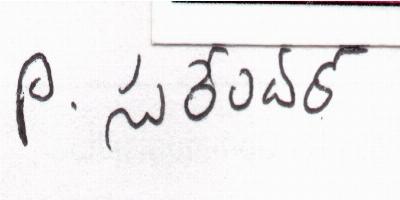 P. సురేందర్